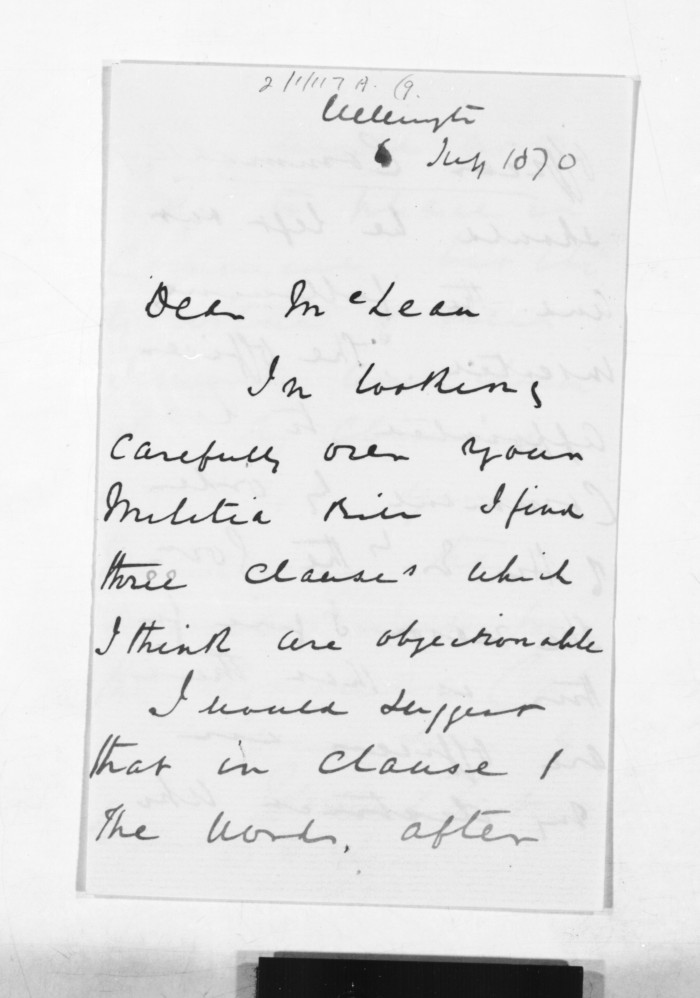 2/1/117A. (9.
Wellington
6 July 1870
Dear McLean
In looking
carefully over your
Militia Bill I find
three clauses which
I think are objectionable
I would suggest
that in clause 1
the words, after